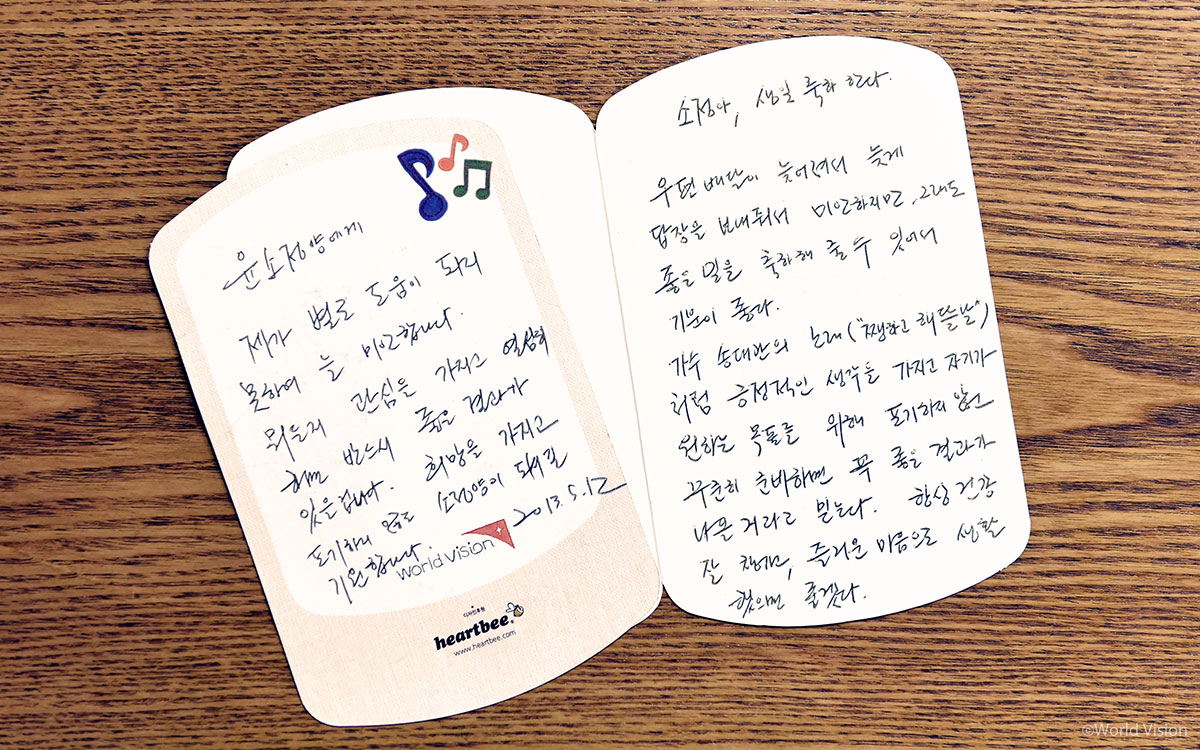 윤소정양에게
제가 별로 도움이 되지
못하여 늘 미안합니다.
뭐든지 관심을 가지고 열심히
하면 반드시 좋은 결과가
있을겁니다. 희망을 가지고
포기하지 않는 소정양이 되시길
기원합니다 2013.5.12
World Vision
디자인후원
heartbee.
www.heartbee.com
소정아, 생일 축하 한다.
우편배달이 늦어져서 늦게
답장을 보내줘서 미안하지만, 그래도
좋은 일을 축하해 줄 수 있어서
기분이 좋다.
가수 송대관의 노래("쨍하고 해뜰날")
처럼 긍정적인 생각을 가지고 자기가
원하는 목표를 위해 포기하지 않고
꾸준히 준비하면 꼭 좋은 결과가
나올 거라고 믿는다. 항상 건강
잘 챙기고, 즐거운 마음으로 생활
했으면 좋겠다.
©World Vision